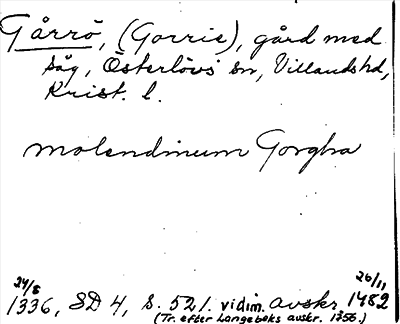 Gårrö, (Gorrie), gård med
såg, Österlövs sn, Villandshd,
Krist. l.
molendinum Gorgha
24/8 26/11
1336, SD 4, s. 521. vidim. avskr. 1482
(Tr. efter Langebeks avskr. 1756.)